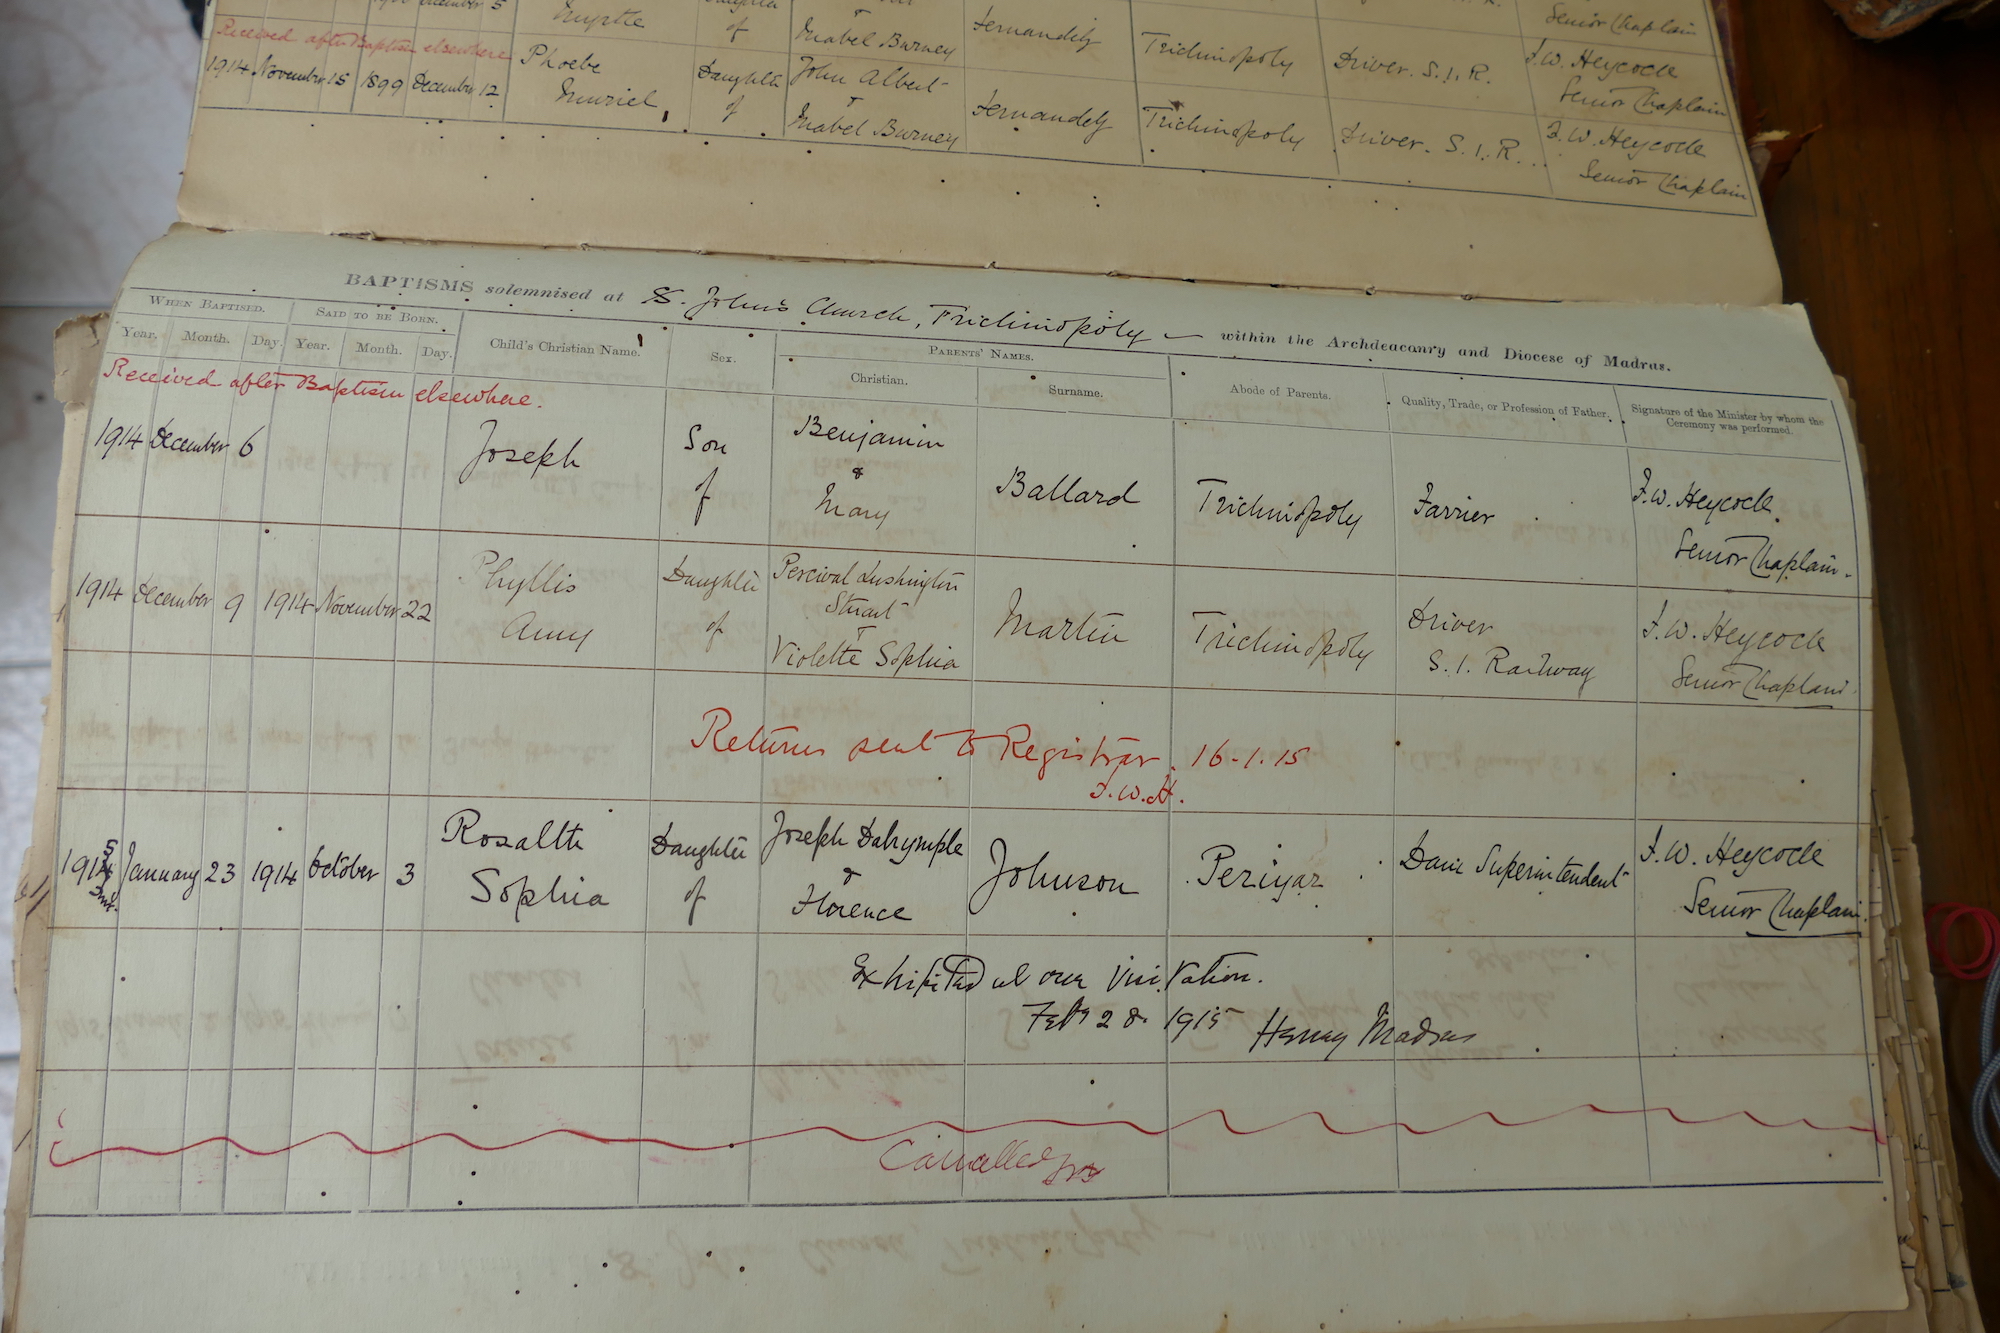 December 5 Myrtle Daughter of & Mabel Burney Fernandez Trichinopoly Driver. S. I. R. F. W. Heycock
Senior Chaplain
Received after Baptism elsewhere
1914 November 15 1899 December 12 Phoebe Muriel Daughter of John Albert & Mabel Burney Fernandez Trichinopoly Driver. S. I. R. F. W. Heycock
Senior Chaplain
BAPTISMS solemnised at S. John's Church, Trichinopoly within the Archdeaconry and Diocese of Madras.
WHEN BAPTISED. SAID TO BE BORN. Child's Christian Name. Sex. PARENTS' NAMES. Abode of Parents. Quality, Trade, or Profession of Father. Signature of the Minister by whom the Ceremony was performed.
Year. Month. Day. Year. Month. Day. Christian. Surname.
Received after Baptism elsewhere.
1914 December 6 Joseph Son of Benjamin & Mary Ballard Trichinopoly Farrier F. W. Heycock.
Senior Chaplain.
1914 December 9 1914 November 22 Phyllis Amy Daughter of Percival Lushington Stuart & Violette Sophia Martin Trichinopoly Driver S. I. Railway F. W. Heycock
Senior Chaplain.
Returns sent to Registrar. 16-1. 15
F. W. H.
1915 January 23 1914 October 3 Rosalth Sophia Daughter of Joseph Dalrymple & Florence Johnson Periyar Dam Superintendent F. W. Heycock
Senior Chaplain.
Exhibited at our Visitation.
Feby 28. 1915 Henry Madras
Cancelled